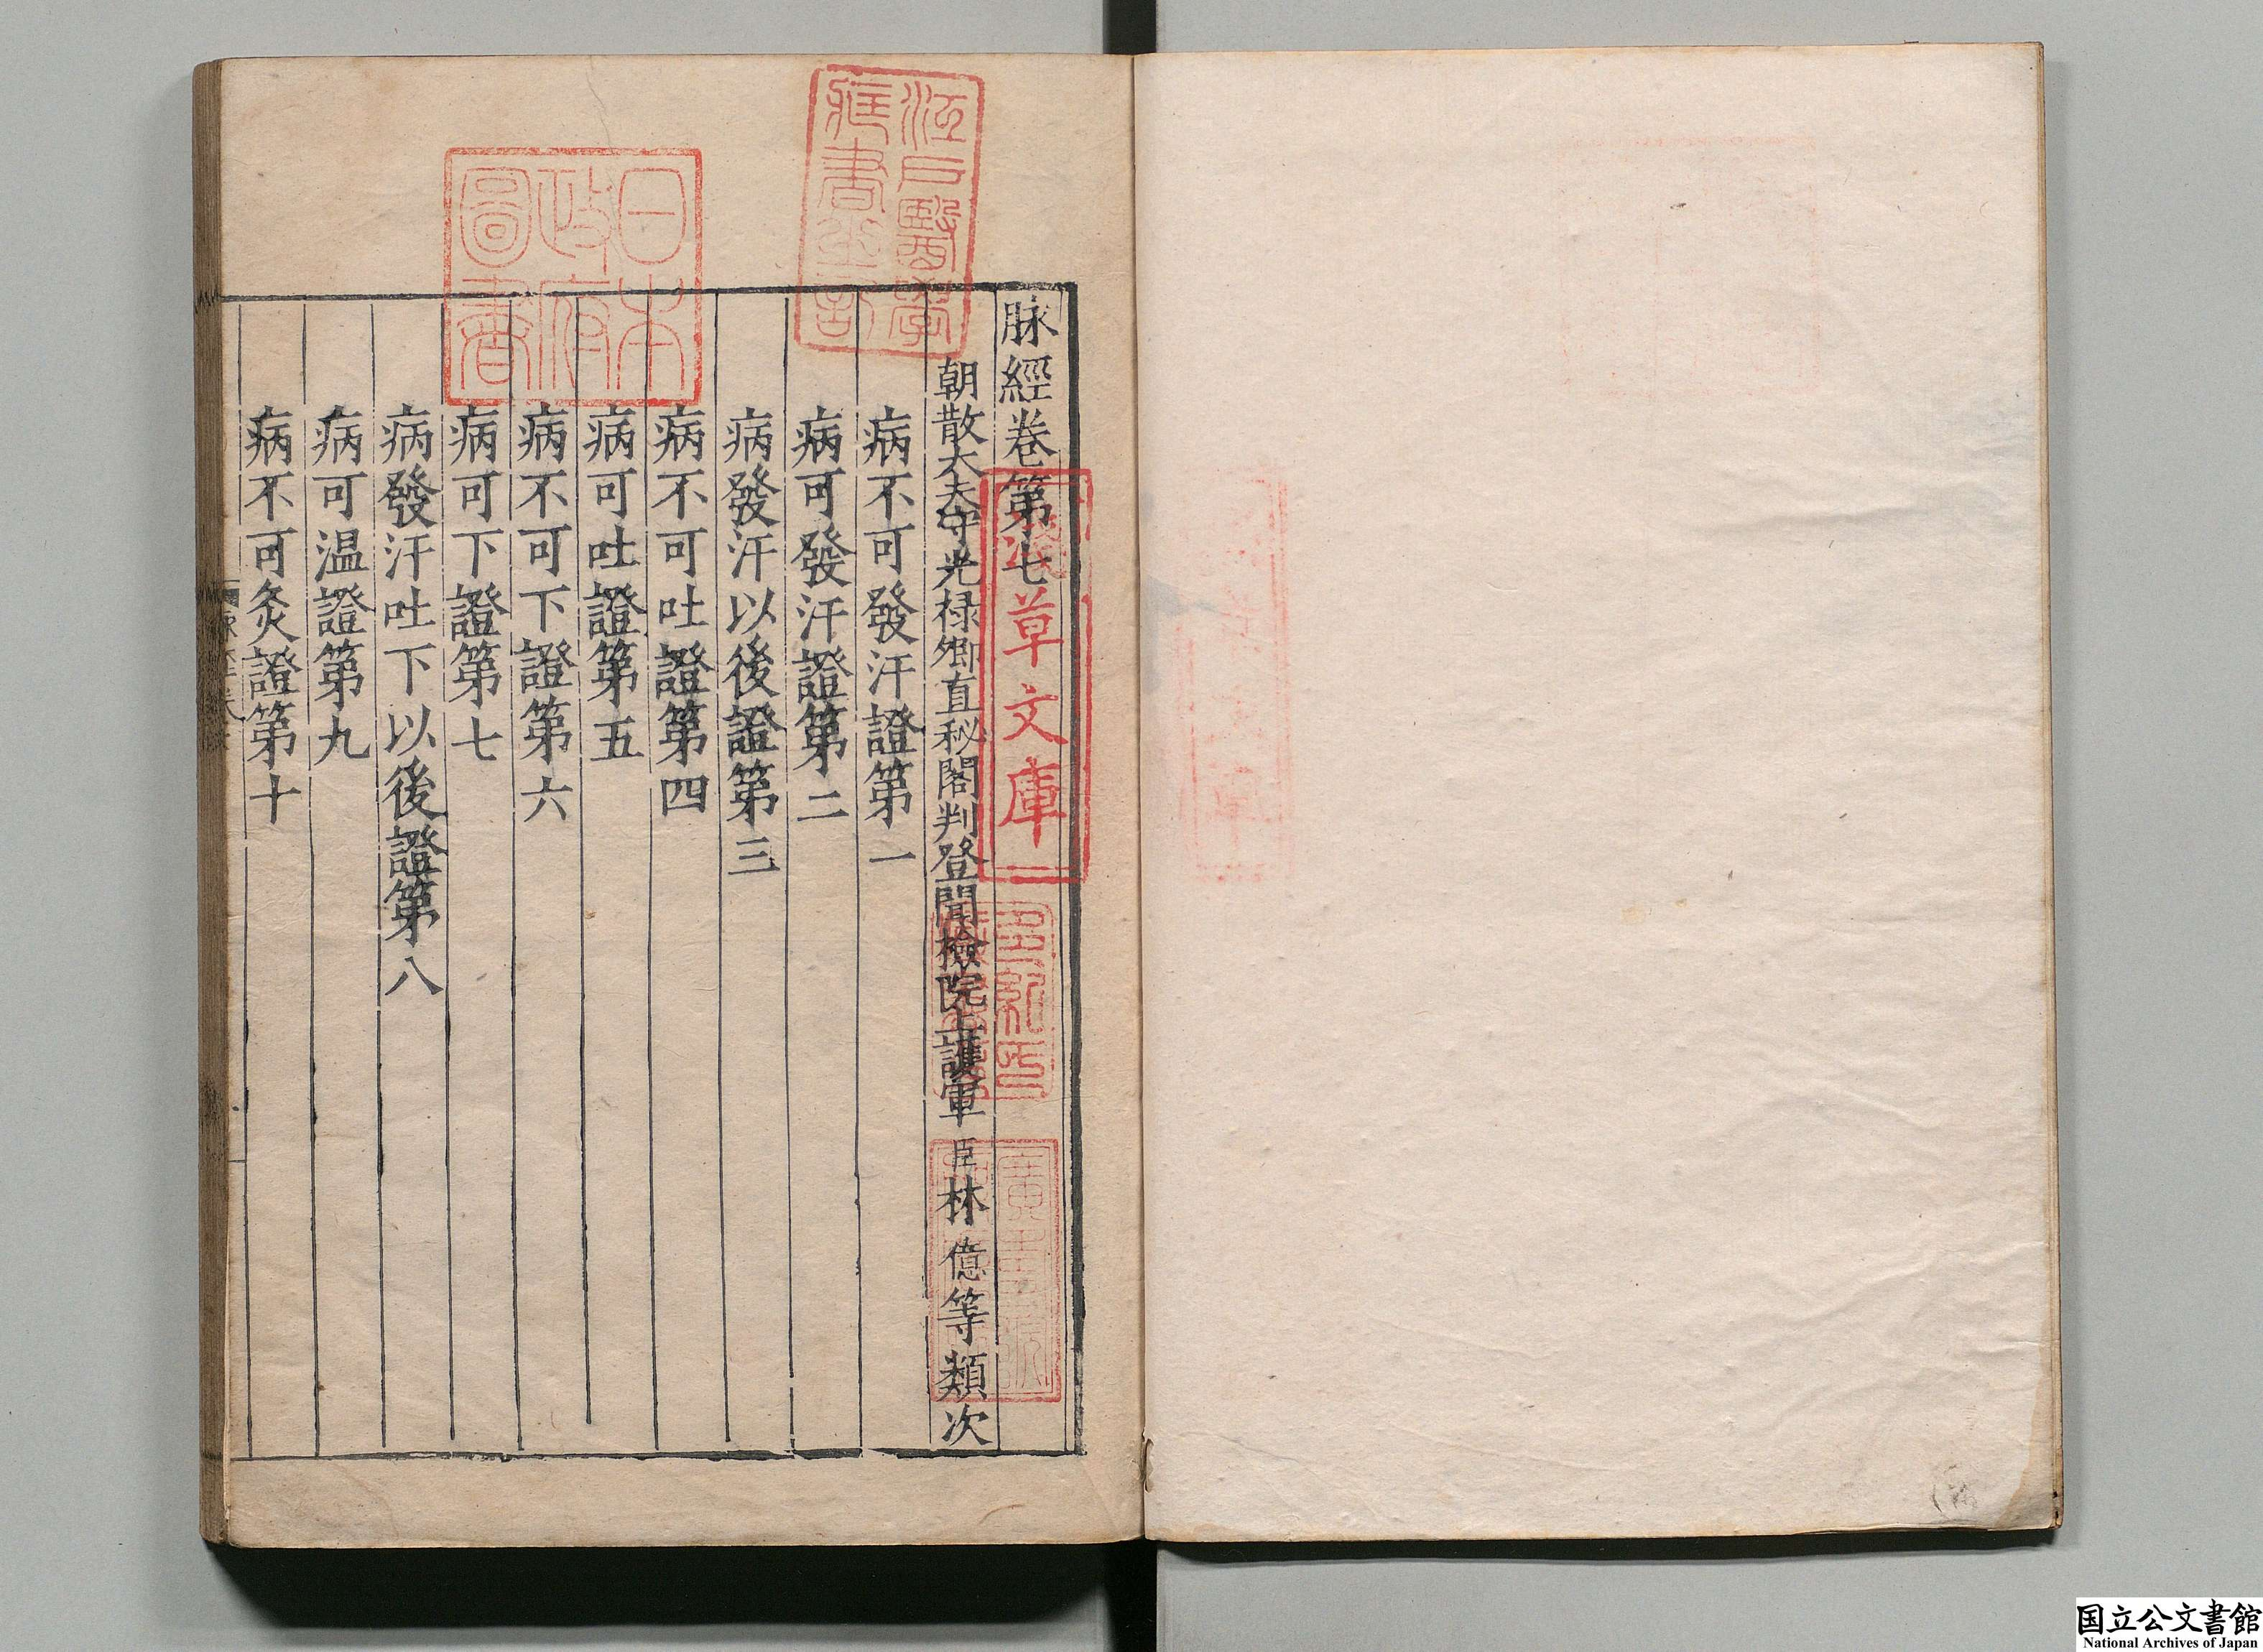 脉經卷第七
朝散大夫守光禄卿直秘閣判登聞檢院上護軍臣林億等類次
病不可發汗證第一
病可發汗證第二
病發汗以後證第三
病不可吐證第四
病可吐證第五
病不可下證第六
病可下證第七
病發汗吐下以後證第八
病可温證第九
病不可灸證第十
江戸醫學
藏書之記
日本
政府
圖書
淺草文庫
国立公文書館
National Archives of Japan